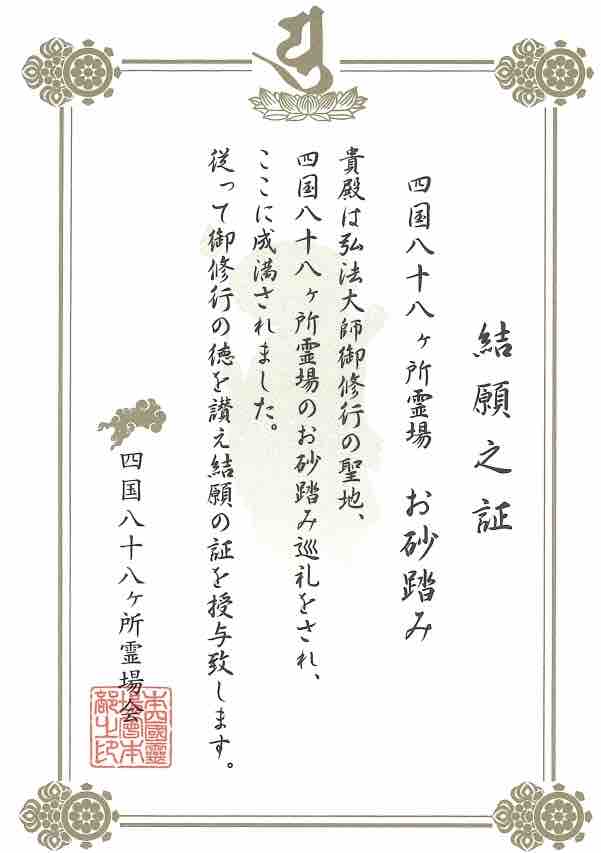 結願之証
四国八十八ヶ所霊場　お砂踏み
貴殿は弘法大師御修行の聖地、
四国八十八ヶ所霊場のお砂踏み巡礼をされ、
ここに成満されました。
従って御修行の徳を讃え結願の証を授与致します。
四国八十八ヶ所霊場会